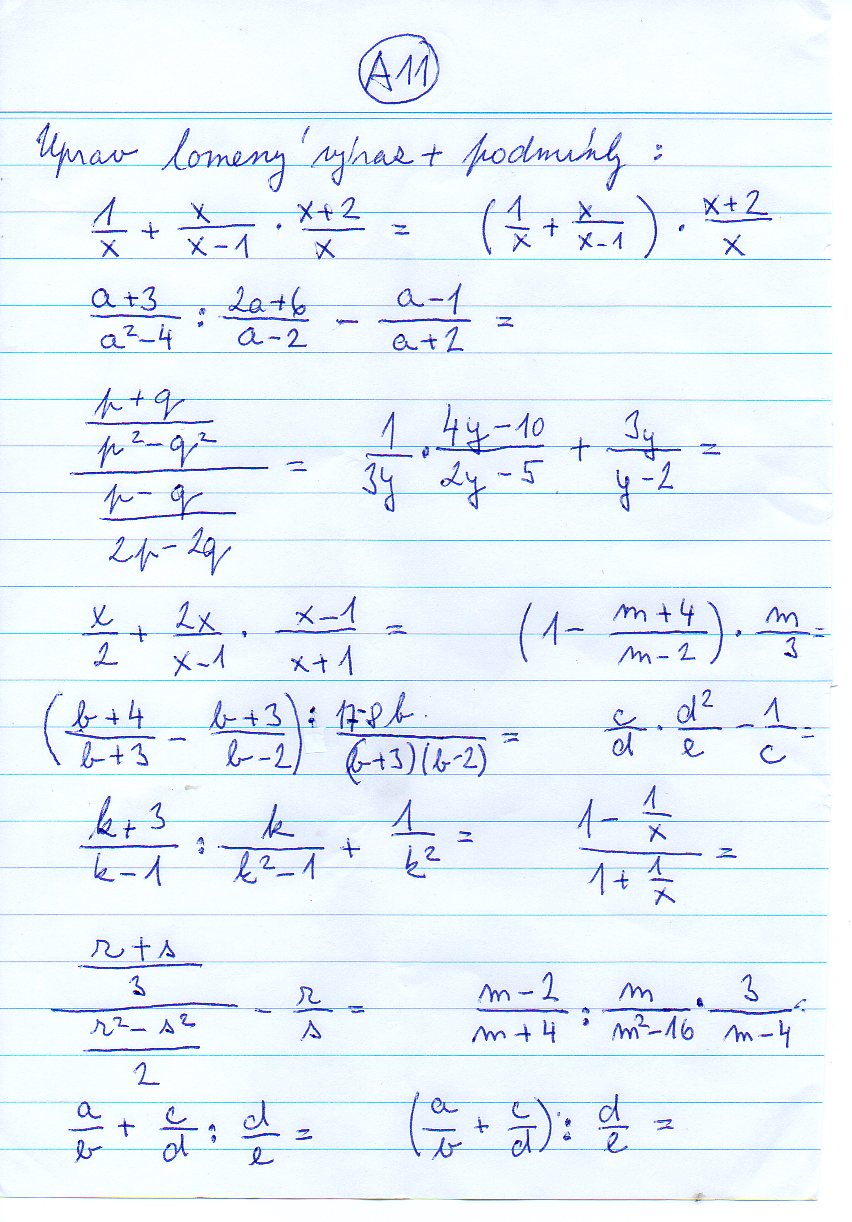 A11
Uprav lomený výraz + podmínky :
1/x + x/(x-1) · (x+2)/x = (1/x + x/(x-1)) · (x+2)/x
(a+3)/(a²-4) : (2a+6)/(a-2) - (a-1)/(a+2) =
((p+q)/(p²-q²))/((p-q)/(2p-2q)) = 1/(3y) · (4y-10)/(2y-5) + 3y/(y-2) =
x/2 + 2x/(x-1) · (x-1)/(x+1) = (1 - (m+4)/(m-2)) · m/3 =
((b+4)/(b+3) - (b+3)/(b-2)) : (17-8b)/((b+3)(b-2)) = c/d · d²/e - 1/c =
(k+3)/(k-1) : k/(k²-1) + 1/k² = (1 - 1/x)/(1 + 1/x) =
((r+s)/3)/((r²-s²)/2) - r/s = (m-2)/(m+4) : m/(m²-16) · 3/(m-4) =
a/b + c/d : d/e = (a/b + c/d) : d/e =